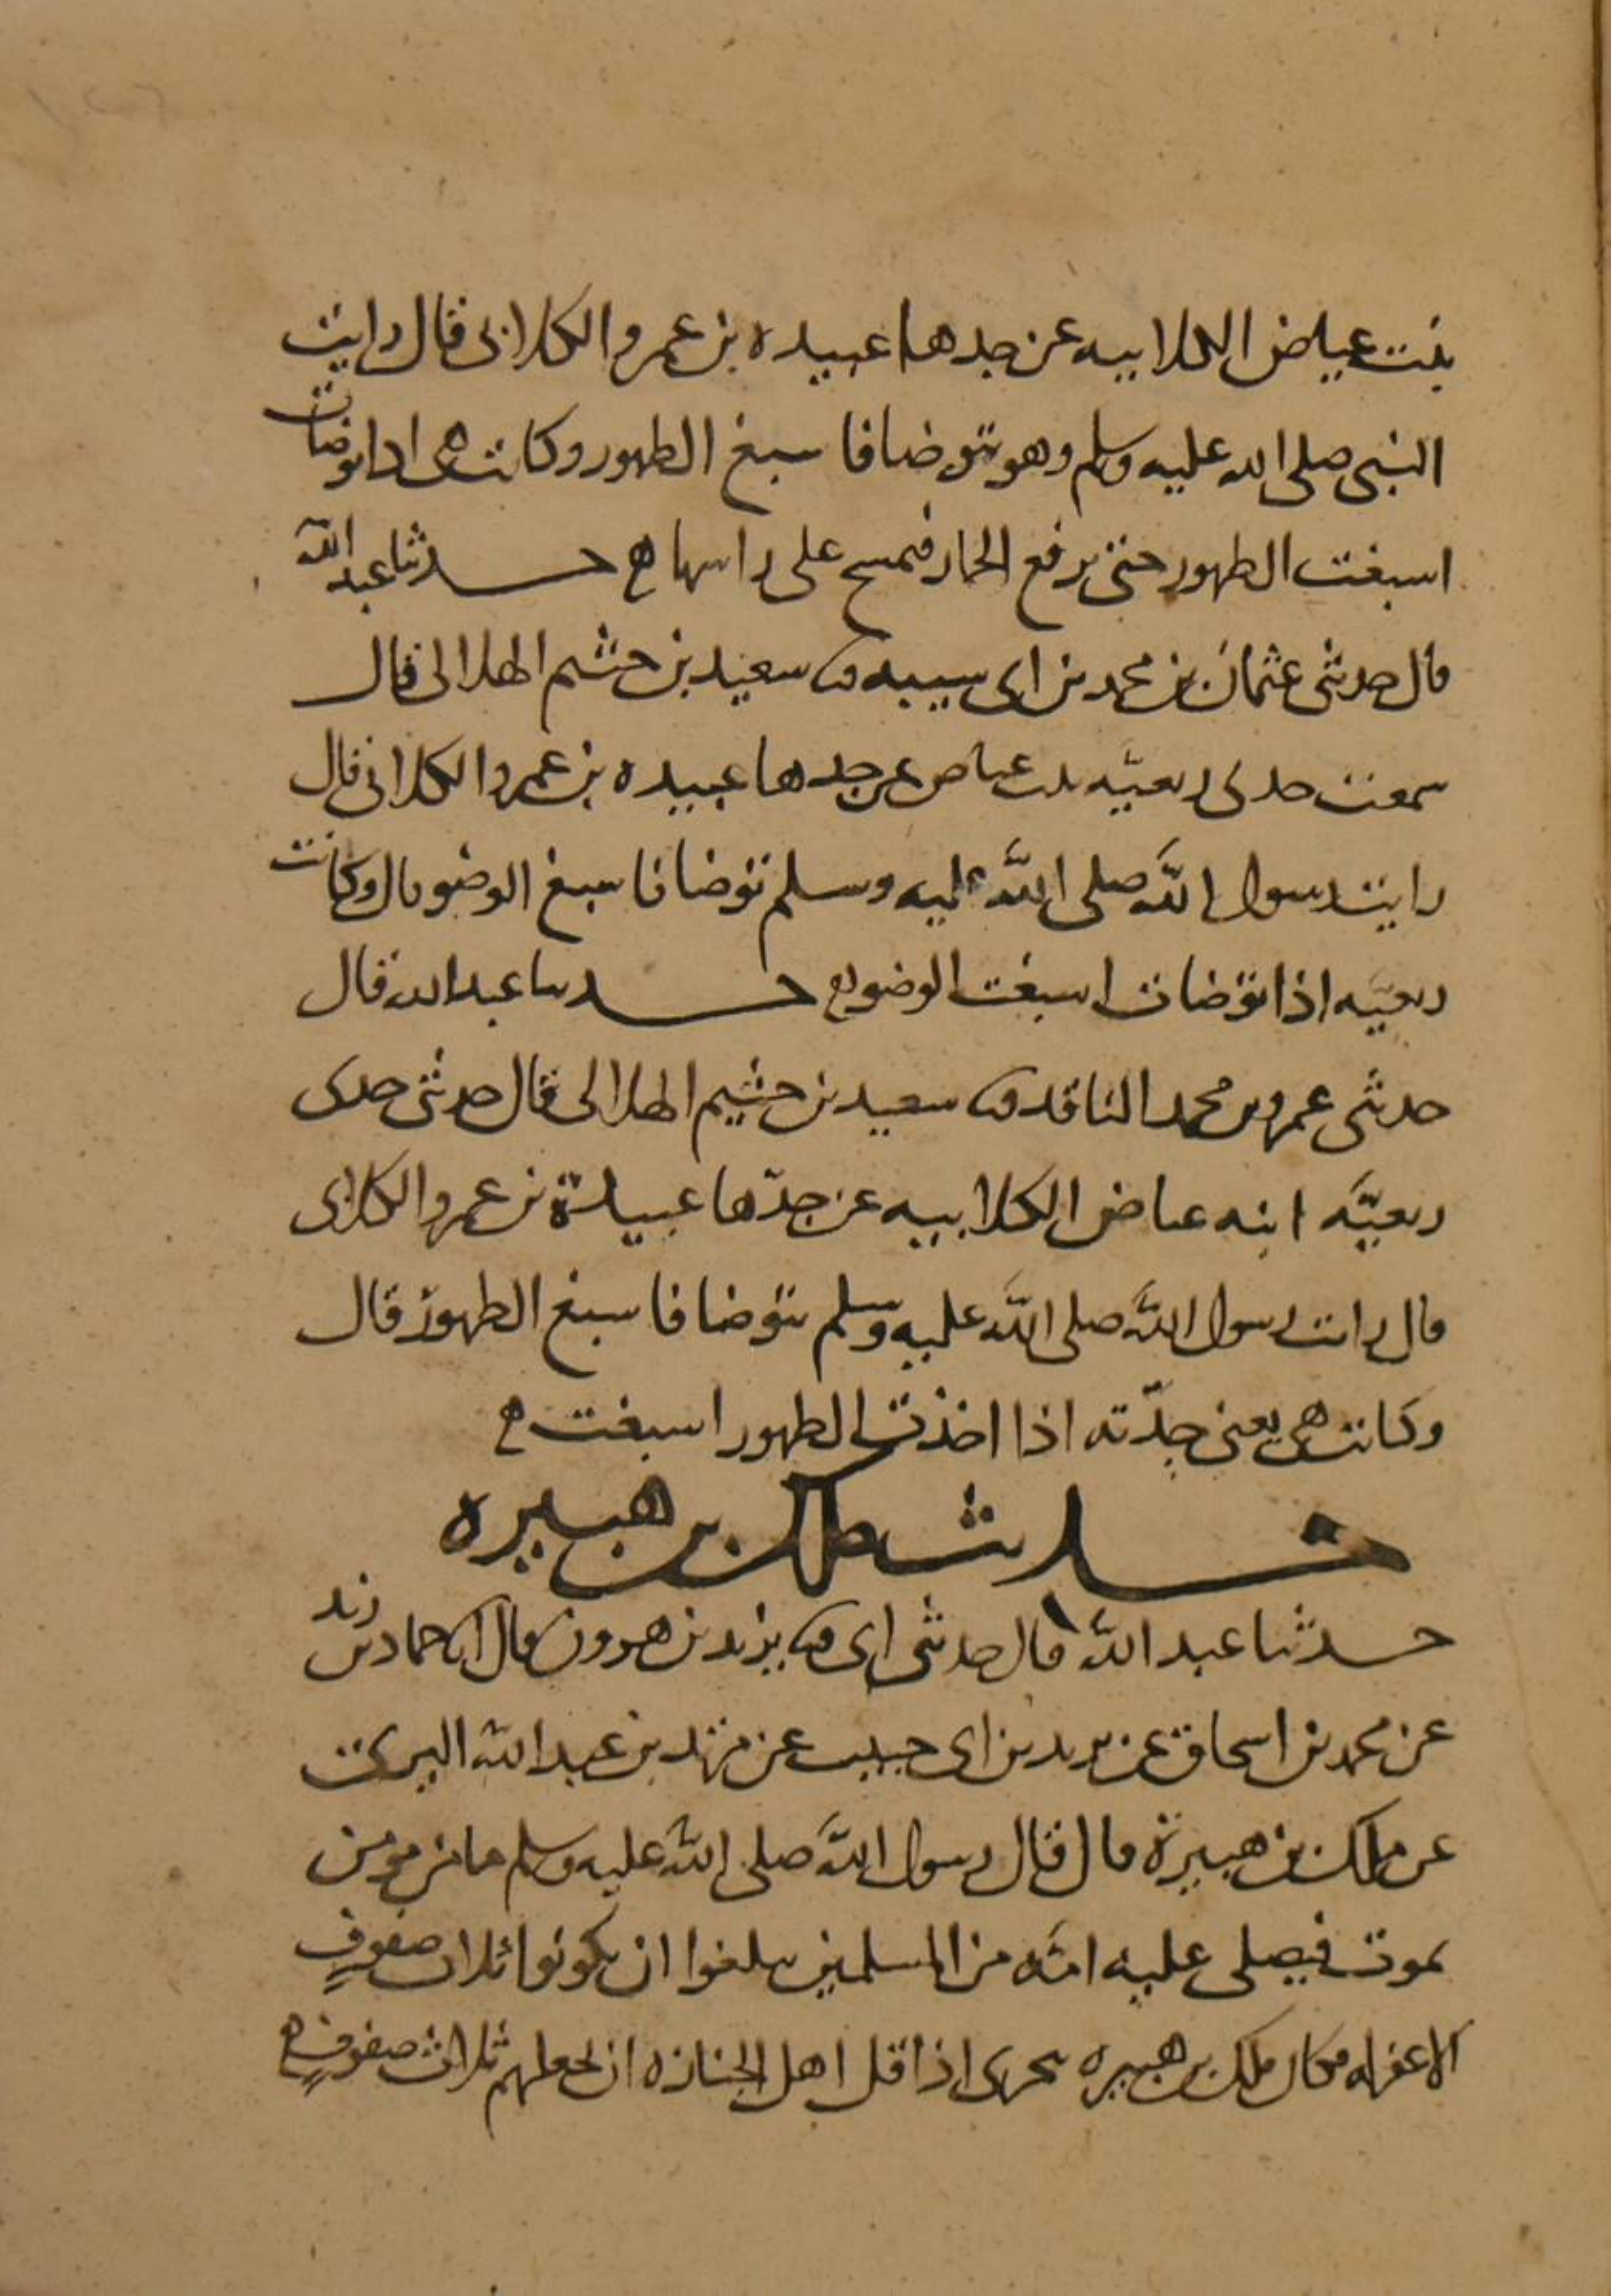 بنت عياض الكلابيه عن جدها عبيده بن عمرو الكلابى قال رايت
النبى صلى الله عليه وسلم وهو يتوضا فاسبغ الطهور وكانت هى اذا توضات
اسبغت الطهور حتى ترفع الخمار فتمسح على راسها ه حدثنا عبد الله
قال حدثنى عثمان بن محمد بن ابى شيبه ثنا سعيد بن خثيم الهلالى قال
سمعت جدتى ربعيّه بنت عياض عن جدها عبيده بن عمرو الكلابى قال
رايت رسول الله صلى الله عليه وسلم توضا فاسبغ الوضو قال وكانت
ربعيّه اذا توضات اسبغت الوضو ه حدثنا عبد الله قال
حدثنى عمرو بن محمد الناقد ثنا سعيد بن خثيم الهلالى قال حدثتنى جدتى
ربعيّه ابنه عياض الكلابيه عن جدّها عبيدة بن عمرو الكلابى
قال رايت رسول الله صلى الله عليه وسلم يتوضا فاسبغ الطهور قال
وكانت هى يعنى جدّته اذا اخذت الطهور اسبغت ه
حديث ملك بن هبيره
حدثنا عبد الله قال حدثنى ابى ثنا يزيد بن هرون قال انا حماد بن زيد
عن محمد بن اسحاق عن يزيد بن ابى حبيب عن مرثد بن عبد الله اليزنى
عن ملك بن هبيرة قال قال رسول الله صلى الله عليه وسلم ما من مومن
يموت فيصلى عليه امّه من المسلمين بلغوا ان يكونوا ثلاث صفوفٍ
الا غفر له فكان ملك بن هبيره يتحرى اذا قل اهل الجنازه ان يجعلهم ثلاث صفوفٍ ه